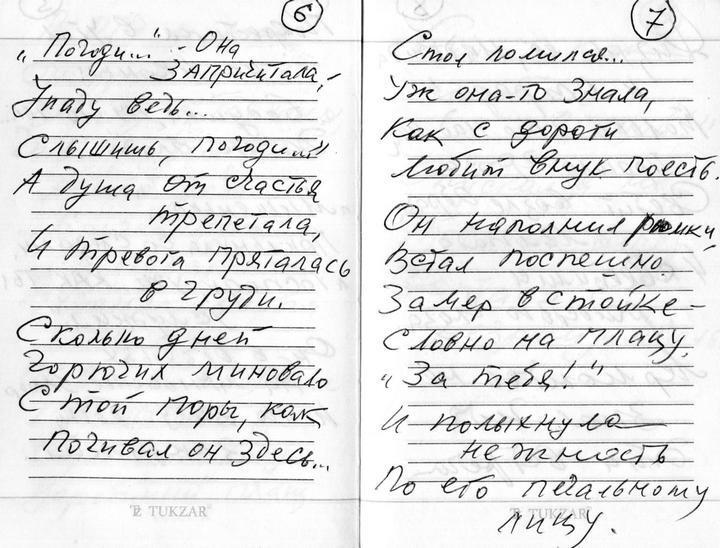 6
„Погоди..." - Она
запричитала,-
Упаду ведь...
Слышишь, погоди..."
А душа от счастья
трепетала,
И тревога пряталась
в груди.
Сколько дней
горючих миновало
С той поры, как
Почивал он здесь...
TUKZAR
7
Стол ломился...
Уж она-то знала,
Как с дороги
Любит внук поесть.
Он наполнил рюмки,
Встал поспешно.
Замер в стойке -
Словно на плацу.
„За тебя!"
И полыхнула
нежность
По его печальному
лицу.
TUKZAR